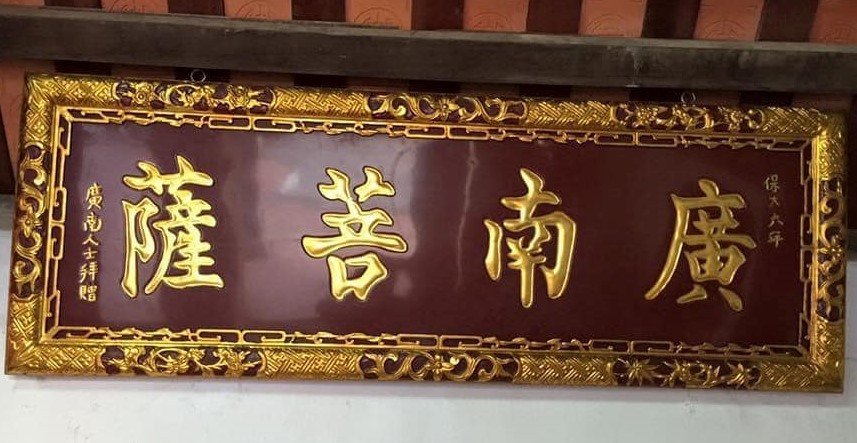 保大六年
廣南菩薩
廣南人士拜贈